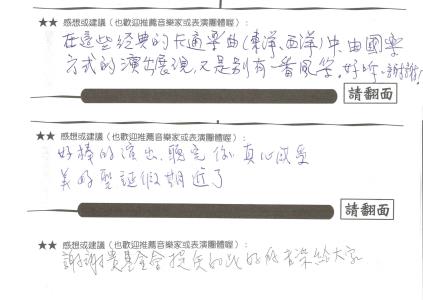 ★★ 感想或建議（也歡迎推薦音樂家或表演團體喔）：
在這些經典的卡通樂曲(東洋、西洋)中,由國樂
方式的演出展現,又是別有一番風味。好听。謝謝!
請翻面
★★ 感想或建議（也歡迎推薦音樂家或表演團體喔）：
好棒的演出,聽完後真心感受
美好聖誕假期近了
請翻面
★★ 感想或建議（也歡迎推薦音樂家或表演團體喔）：
謝謝貴基金會提供如此好的音樂給大家